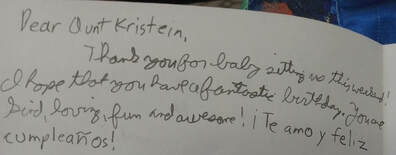 Dear Aunt Kristein,
Thank you for baby sitting us this weekend!
I hope that you have a fantastic birthday. You are
kind, loving, fun and awesome! ¡Te amo y feliz
cumpleaños!